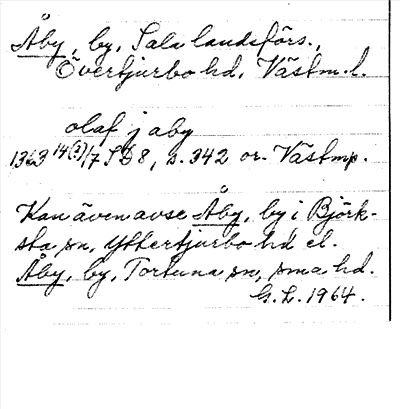 Åby, by, Sala landsförs.,
Övertjurbo hd, Västm. l.
olaf j aby
1363 14(?)/7 SD8, s. 342 or. Västmp.
Kan även avse Åby, by i Björk-
sta sn, Yttertjurbo hd el.
Åby, by, Tortuna sn, sma hd.
G. L. 1964.